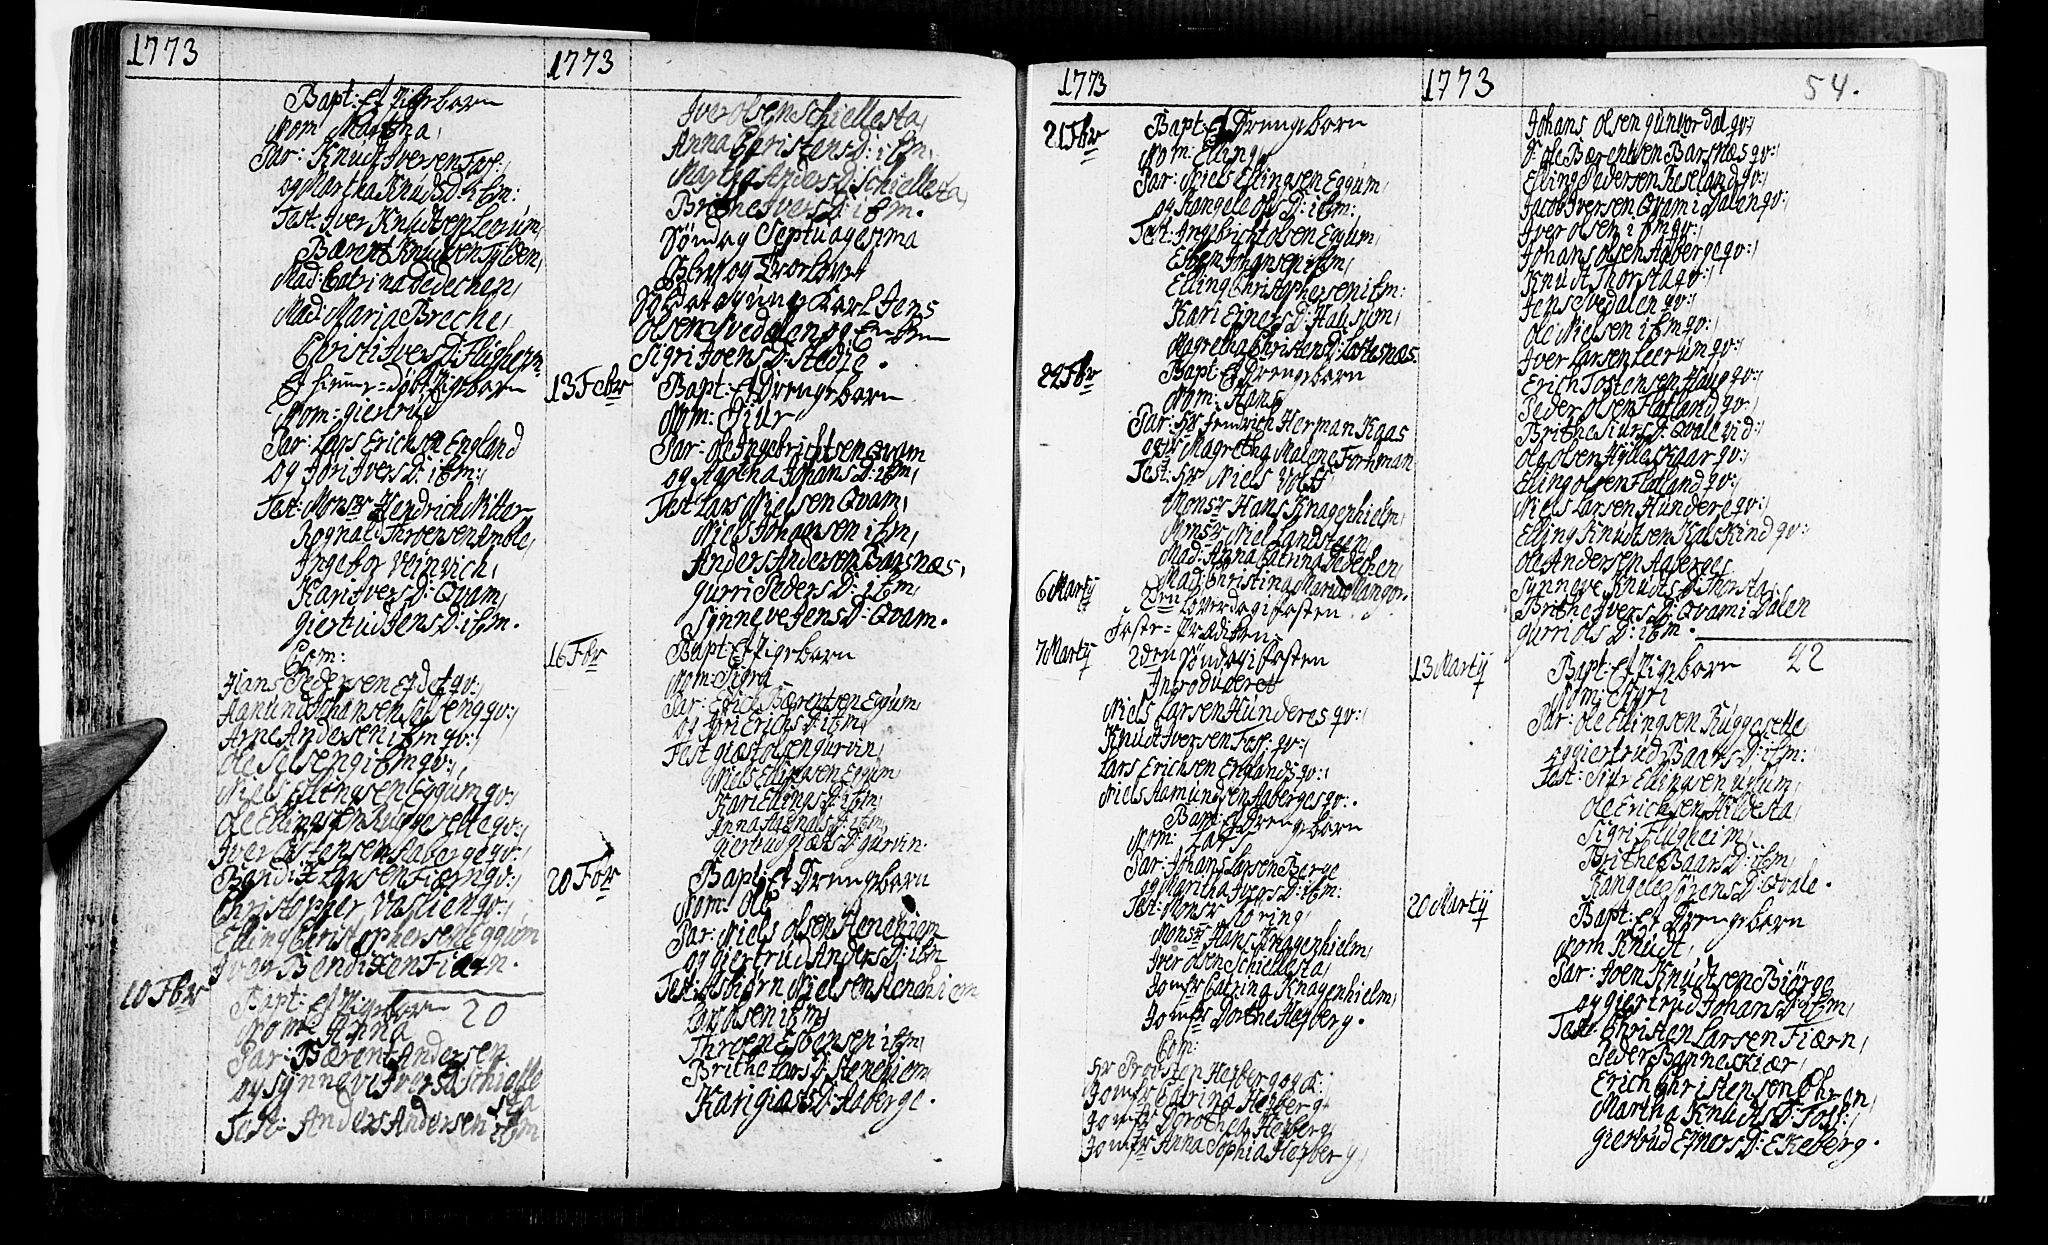 1773
Bapt: Et Pigebarn
Nom: Martha,
Par: Knud Iversen Foss,
og Martha KnudsD: ibm:
Test: Iver Knudsen Leerum,
Bærent Knudsen Sylden,
Mad: Catrina Dedechen,
Mad: Maria Breche,
Christi IversD: Flugheim.
Et hiemme-døbt Pigebarn
Nom: Giertrud
Par: Lars Erichsen England
og Jori IversD: ibm:,
Test: Monsr Hendrich Ritter
Rognald Throensen Amble,
Ingebor Veinvich,
Kari IversD: Qvam,
Giertrud JensD: ibm.
Com:
Hans Pedersen Eidet qv:,
Aamund Johansen Selseng qv:,
Arne Andersen ibm qv:,
Ole Selseng ibm qv:,
Niels Ellingsen Eggum qv:,
Ole Ellingsen Ruggesette qv:,
Iver Tostensen Aaberge qv:,
Bendix Larsen Fiærn qv:,
Christopher Vaslien qv:,
Elling Christophersen Eggum
Iver Bendixen Fiærn.
10 Fbr
Bapt: et Pigebarn 20
Nom: Anna
Par: Bærent Andersen
og Synneve IversD: Schielle
sta
Test: Anders Andersen ibm
1773
Iver Olsen Schiellesta,
Anna ChristensD: ibm,
Martha AndersD: Schiellesta,
Brithe IversD: ibm.
Søndag Septuagesima
Blev og Trorlovet
Soldat og ung Karl Jens
Olsen Svedalen og Enken
Sigri IvensD: Stedie.
13 Febr
Bapt: Et Drengebarn
Nom: Siur
Par: Ole Ingebrichtsen Qvam
og Agatha JohansD: ibm,
Test Lars Nielsen Qvam,
Niels Johansen ibm,
Anders Anderson Barsnæs,
Gurri PedersD: ibm,
Synneve JensD: Qvam.
16 Fbr
Bapt: Et Pigebarn
Nom: Sigra
Par: Erich Bærentsen Eggum,
og Jori ErichsD: ibm,
Test Giæst Olsen Gurvin,
Niels Ellingsen Eggum
Kari EllingsD: ibm,
Anna ibm,
Giertrud GiæstsD: Gurvin.
20 Fbr
Bapt: et Drengebarn
Nom: Ole
Par: Niels Olsen Henehiem
og Giertrud AndersD: ibm
Test: Asbiørn Nielsen Henehiem
Lars Olsen ibm,
Throen Esbensen ibm,
Brithe LarsD: Stenehiem
Kari GiæstsD: Aaberge.
1773
21 Fbr
Bapt: Et Drengebarn
Nom: Elling
Par: Niels Ellingsen Eggum,
og Rangele OlsD: ibm:,
Test: Ingebricht Olsen Eggum,
Esben Johansen ibm,
Elling Christophersen ibm:
Kari EinersD: Halsion,
Magretha ChristensD: Loftesnæs.
22 Fbr
Bapt: Et Drengebarn
Nom: Hans
Par: Hr Fendrich Herman Kaas
og Magretha Malene Fortman
Test: Hr Niels Voltt,
Monsr Hans Knagenhielm,
Monsr Niel Landsteen,
Mad: Anna Catrina Dedechen,
Mad: Christina Maria Mangor.
6 Martj
2den Løverdag i fasten
Faste-Prædiken
7 Martj
2den Søndag i fasten
Introduceret
Niels Larsen Hunderes qv:,
Knud Iversen Foss: qv:,
Lars Erichsen Englands qv:,
Niels Aamundsen Aaberges qv:.
Bapt: et Drengebarn
Nom: Lars
Par: Johans Larsen Berge
og Martha IversD: ibm:
Test: Monsr Noring,
Monsr Hans Knagenhielm,
Iver Olsen Schiellesta,
Jomfr Catrina Knagenhielm,
Jomfr Dorthe Heiberg.
Com:
Hr Provsten Heiberg og K:
Jomfr Catrina Heiberg
Jomfr Dorothea Heiberg,
Jomfr Anna Sophia Heiberg,
1773
54.
Johans Olsen Gunvordal qv:,
S: Ole Bærentsen Barsnæs qv:,
Elling Pedersen Reseland qv:,
Jacob Iversen Qvam i Dalen qv:,
Iver Olsen ibm qv:,
Johans Olsen Aaberge qv:,
Knudt Thorsta qv:,
Jens Svedalen qv:,
Ole Nielsen ibm qv:,
Iver Larsen Leerum qv:,
Erich Tostensen Haug qv:,
Peder Olsen Flatland qv:,
Brithe SiursD: Qvale vid:,
Ole Olsen Hylleskaar qv:,
Elling Olsen Flatland qv:,
Niels Larsen Hundere qv:,
Elling Knudtsen Kalskind qv:
Ole Andersen Aaberges
Synneve KnudtsD: Thorsta,
Brithe IversD: Qvam i Dalen
Gurri OlsD: ibm.
13 Martij
Bapt: Et Pigebarn 22
Nom: Sigri
Par: Ole Ellingsen Ruggesette
og Giertrud BaarsD: ibm:
Test: Siur Ellingsen Uglum,
Ole Erichsen Hildesta,
Sigri Flugheim,
Brithe BaarsD: ibm,
Rangele SørensD: Qvale.
20 Martij
Bapt: et Drengebarn
Nom Knudt,
Par: Iven Knudtsen Biørge
og Giertrud JohansD: ibm,
Test: Christen Larsen Fiærn,
Peder Bonneckiær,
Erich Christenson Øhren,
Martha KnudtsD: Foss:,
Giertrud EinersD: Ekeberg.